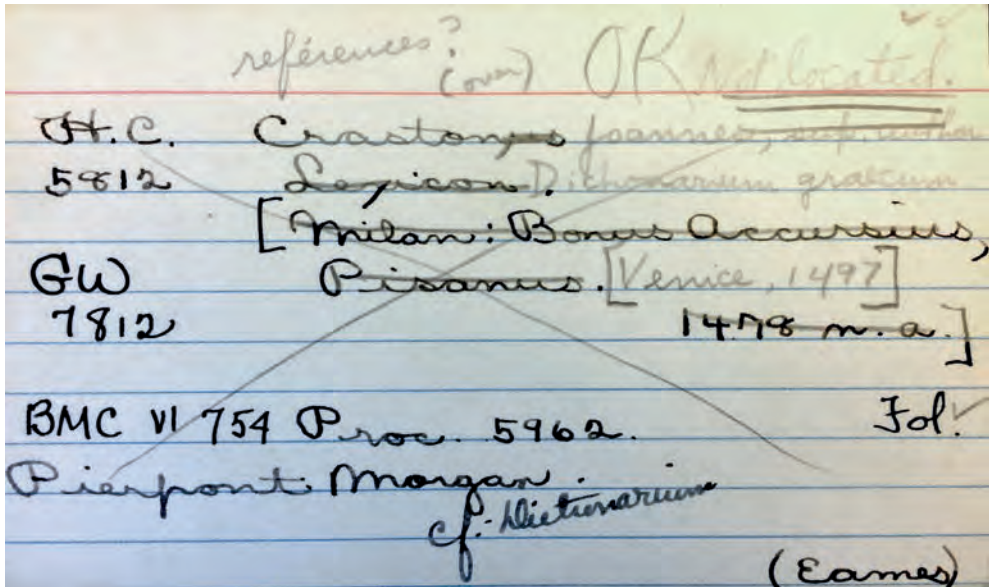 références?
(over) OK Not located.
H.C. Crastonus Joannes, sup. author
5812 Lexicon. Dictionarium graecum
[Milan: Bonus Accursius,
GW Pisanus. [Venice, 1497]
7812 1478 n. a.]
BMC VI 754 Proc. 5962. Fol.
Pierpont Morgan.
cf. Dictionarium
(Eames)